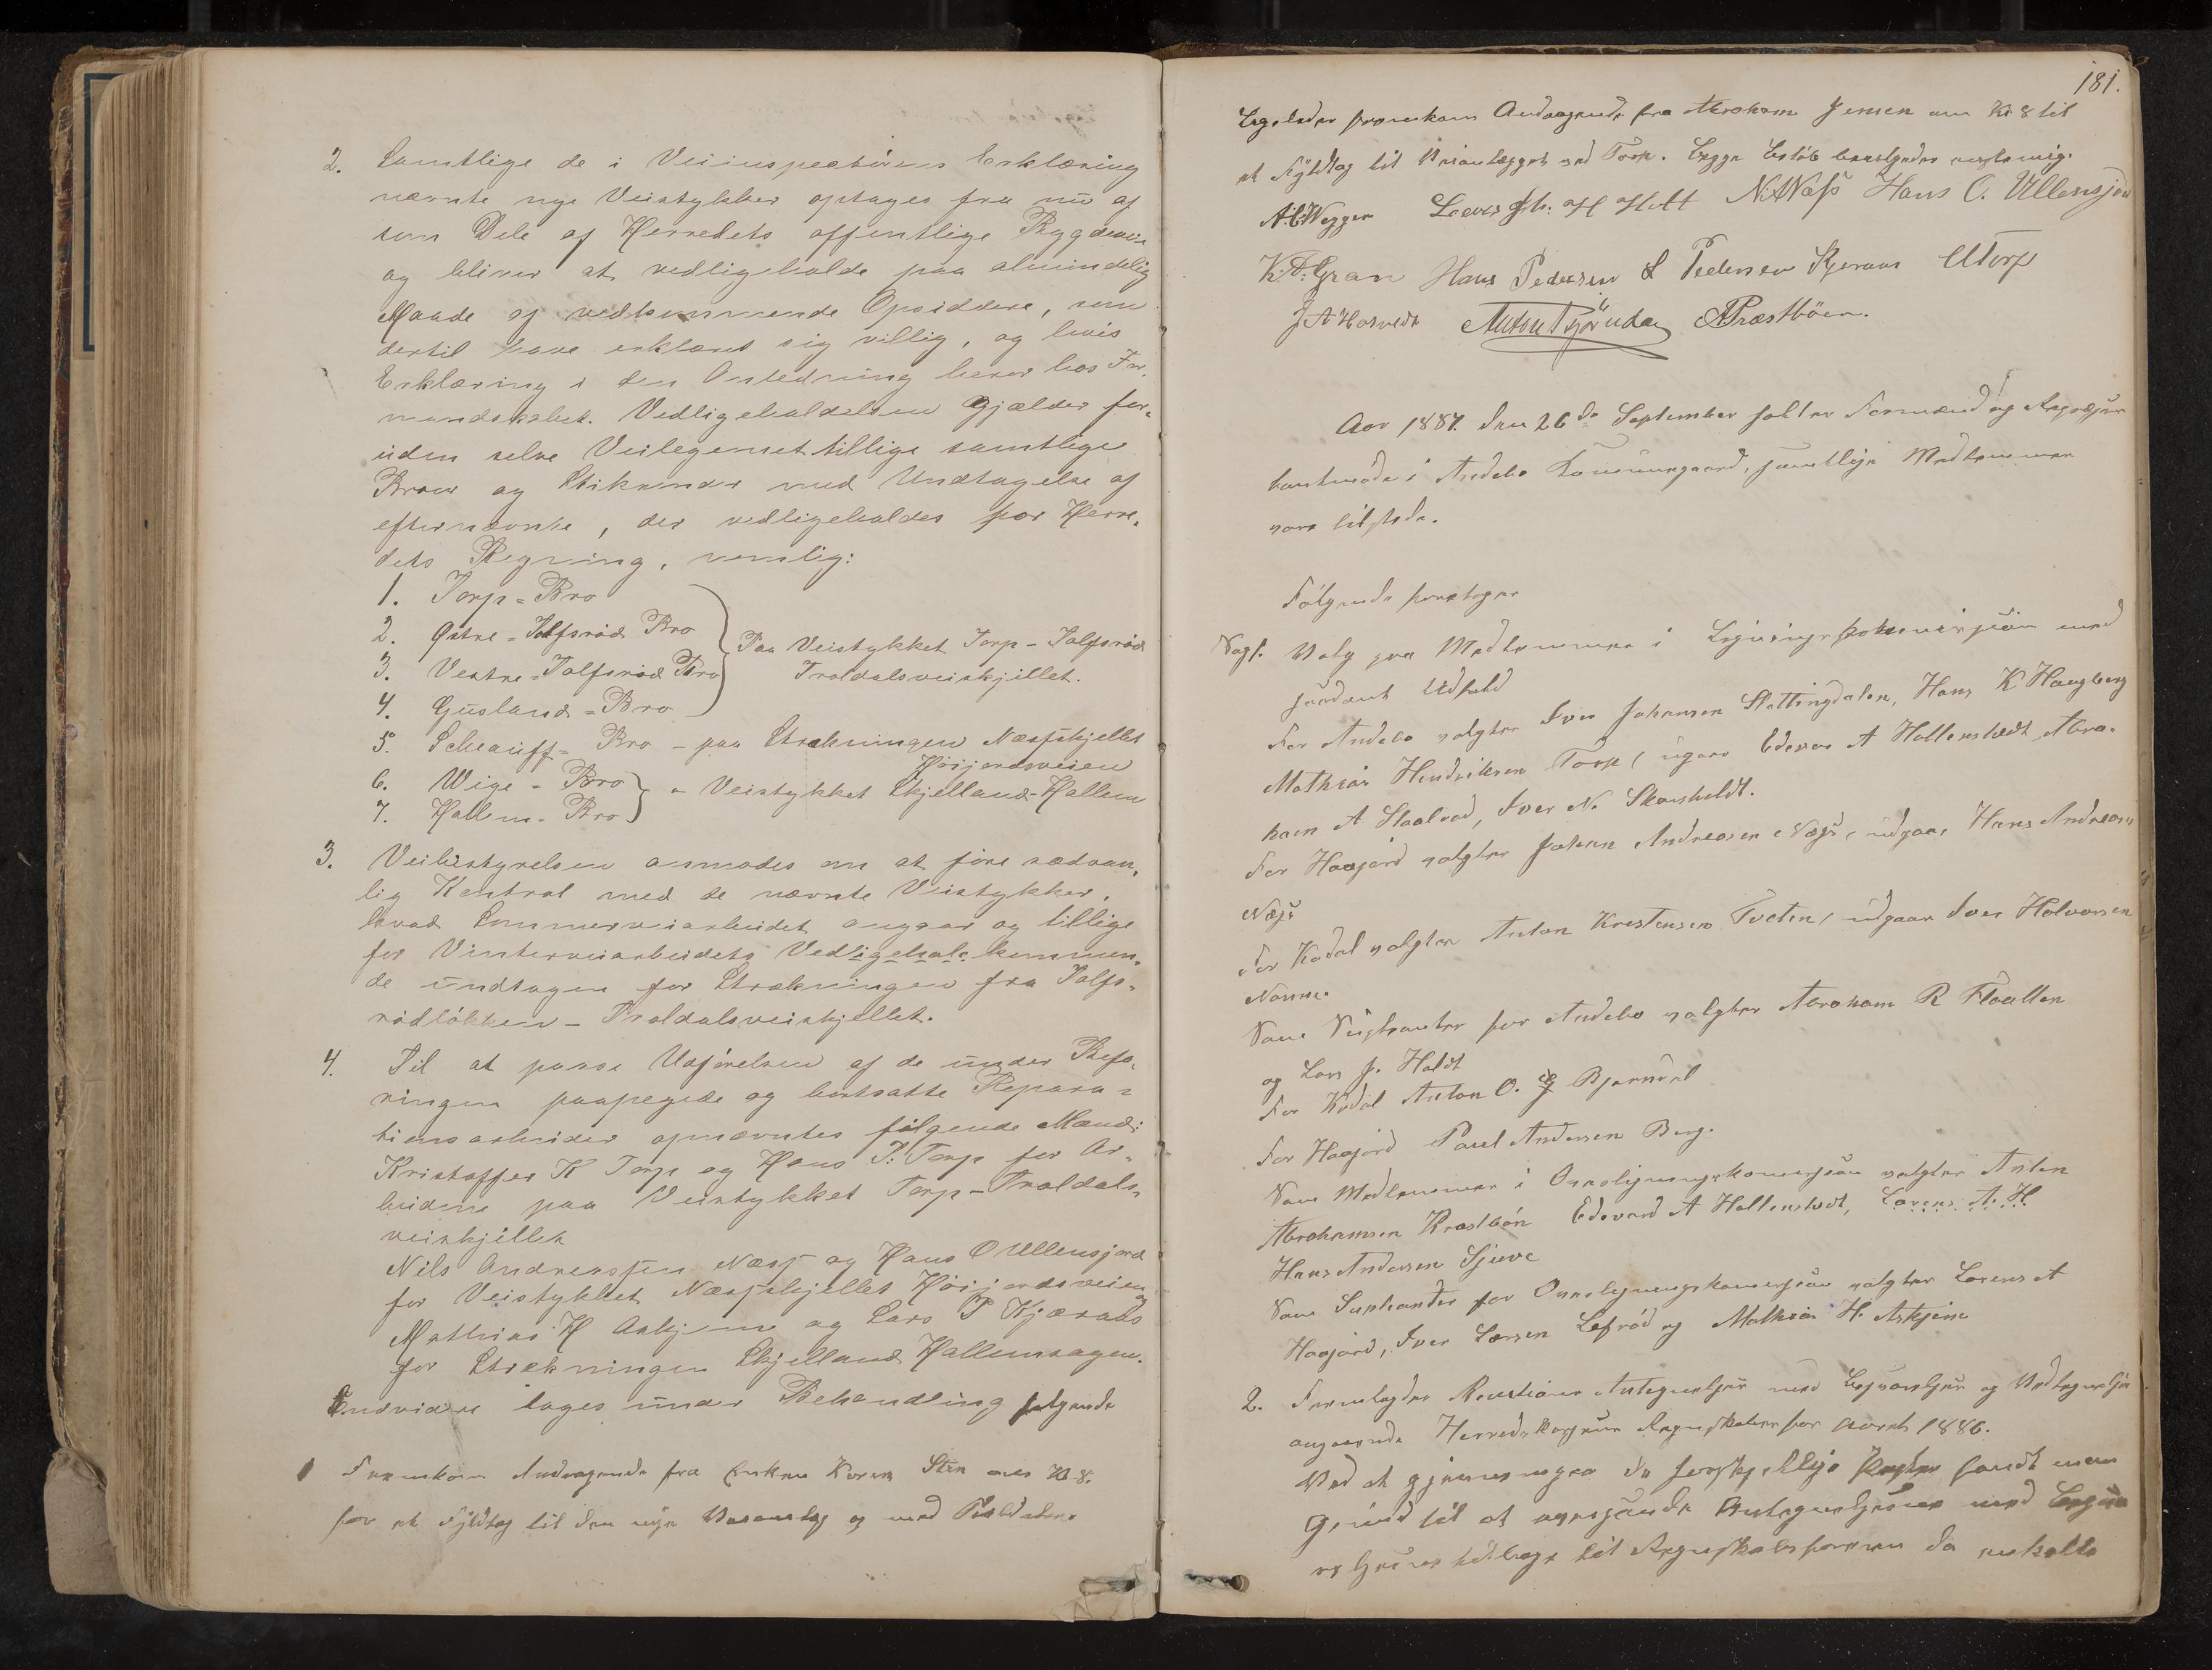 2. Samtlige de i Veiinspectörens Erklæring
nævnte nye Veistykker optages fra nu af
som Dele af Herredets offentlige Bygdeveie
og bliver at vedligeholde paa almindelig
Maade af vedkommende Opsiddere, som
dertil have erklæret sig villig, og hvis
Erklæring i den Anledning beror hos For-
mandskabet. Vedligeholdelsen gjælder for-
uden selve Veilegemet tillige samtlige
Broer og Stikrender med Undtagelse af
efternævnte, der vedligeholdes for Herre-
dets Regning, nemlig:
1. Torp-Bro
2. Østre-Tolfsröd Bro
3. Vestre-Tolfsröd Bro
Paa Veistykket Torp-Tolfsröd
Troldalsveiskjellet.
4. Gusland-Bro
5. Schauff-Bro - paa Strækningen Næsskjellet
Höijordsveien
6. Wige-Bro
7. Hallem-Bro
" Veistykket Skjelland-Hallem
3. Veibestyrelsen anmodes om at före sædvan-
lig Kontrol med de nævnte Veistykker,
hvad Sommerveiarbeidet angaar og tillige
for Vinterveiarbeidets Vedkommen-
de undtagen for Strækningen fra Tolfs-
rödlökken - Troldalsveiskjellet.
4. Til at passe Udförelsen af de under Befa-
ringen paapegede og bortsatte Repara-
tionsarbeider opnævntes fölgende Mænd:
Kristoffer K Torp og Hans P. Torp for Ar-
beidene paa Veistykket Torp-Troldals-
veiskjellet
Nils Andreassen Næss og Hans O Ullensjord
for Veistykket Næsskjellet Höijordsveien og
Mathias H Askjem og Lars P Kjæraas
for Strækningen Skjelland Hallemsagen.
Endvidere toges under Behandling følgende
1 Fremkom Andragende fra Enken Karen Sten om Kr 8.
for et Fyldtag til den nye
181.
Ligeledes fremkom Andragende fra Abraham Jensen om Kr 8 til
et Fyldtag til Veianlægget ved Torp. Begge Beløb bevilgedes enstemmig.
A.C. Wegger H Holt N A Næss Hans O. Ullensjord
K.D. Gran Hans Pedersen L Pedersen Kjeraas Torp
J A Hasvedt A Præstböen.
Aar 1887 den 26de September holdtes Formænd og Repræsen
tantmøde i Andebo Kommunegaard, samtlige Medlemmer
vare tilstede.
Følgende foretoges
Valg paa Medlemmer i Ligningskommissjon med
saadant Udfald
For Andebo valgtes Iver Johansen Slettingdalen, Hans K Haugberg
Mathias Hendriksen Torp, udgaar Edvard A Hallenstvedt Abra-
ham A Staalrod, Iver N. Skarsholdt.
For Høijord valgtes Johan Andreasen Næss, udgaar Hans Andreasen
Næss
For Kodal valgtes Anton Kristensen Tveten, udgaar Iver Halvorsen
Nomme.
Som Suplianter for Andebo valgtes Abraham R Flaatten
og Lars J. Holdt
For Kodal Anton O. Bjørndal
For Høijord Paul Andersen Berg.
Som Medlemmer i Overligningskommissjon valgtes Anton
Abrahamsen Præstbön Edvard A Hallenstvedt, Lorens A. H
Hans Andersen Gjeve
Som Suplianter for Overligningskommissjon valgtes Lorens A
Høijord, Iver Larsen Lefsröd og Mathias H. Askjem
2. Fremlagdes Revisions Antegnelser med Besvarelser og Vedtegnelse
angaaende Herredskassens Regnskaber for Aaret 1886.
Ved at gjennemgaa de forskjellige Poster fandt man
Grund til at oversende Antegnelserne med Besva
relserne tilbage til Regnskabsføreren da enkelte